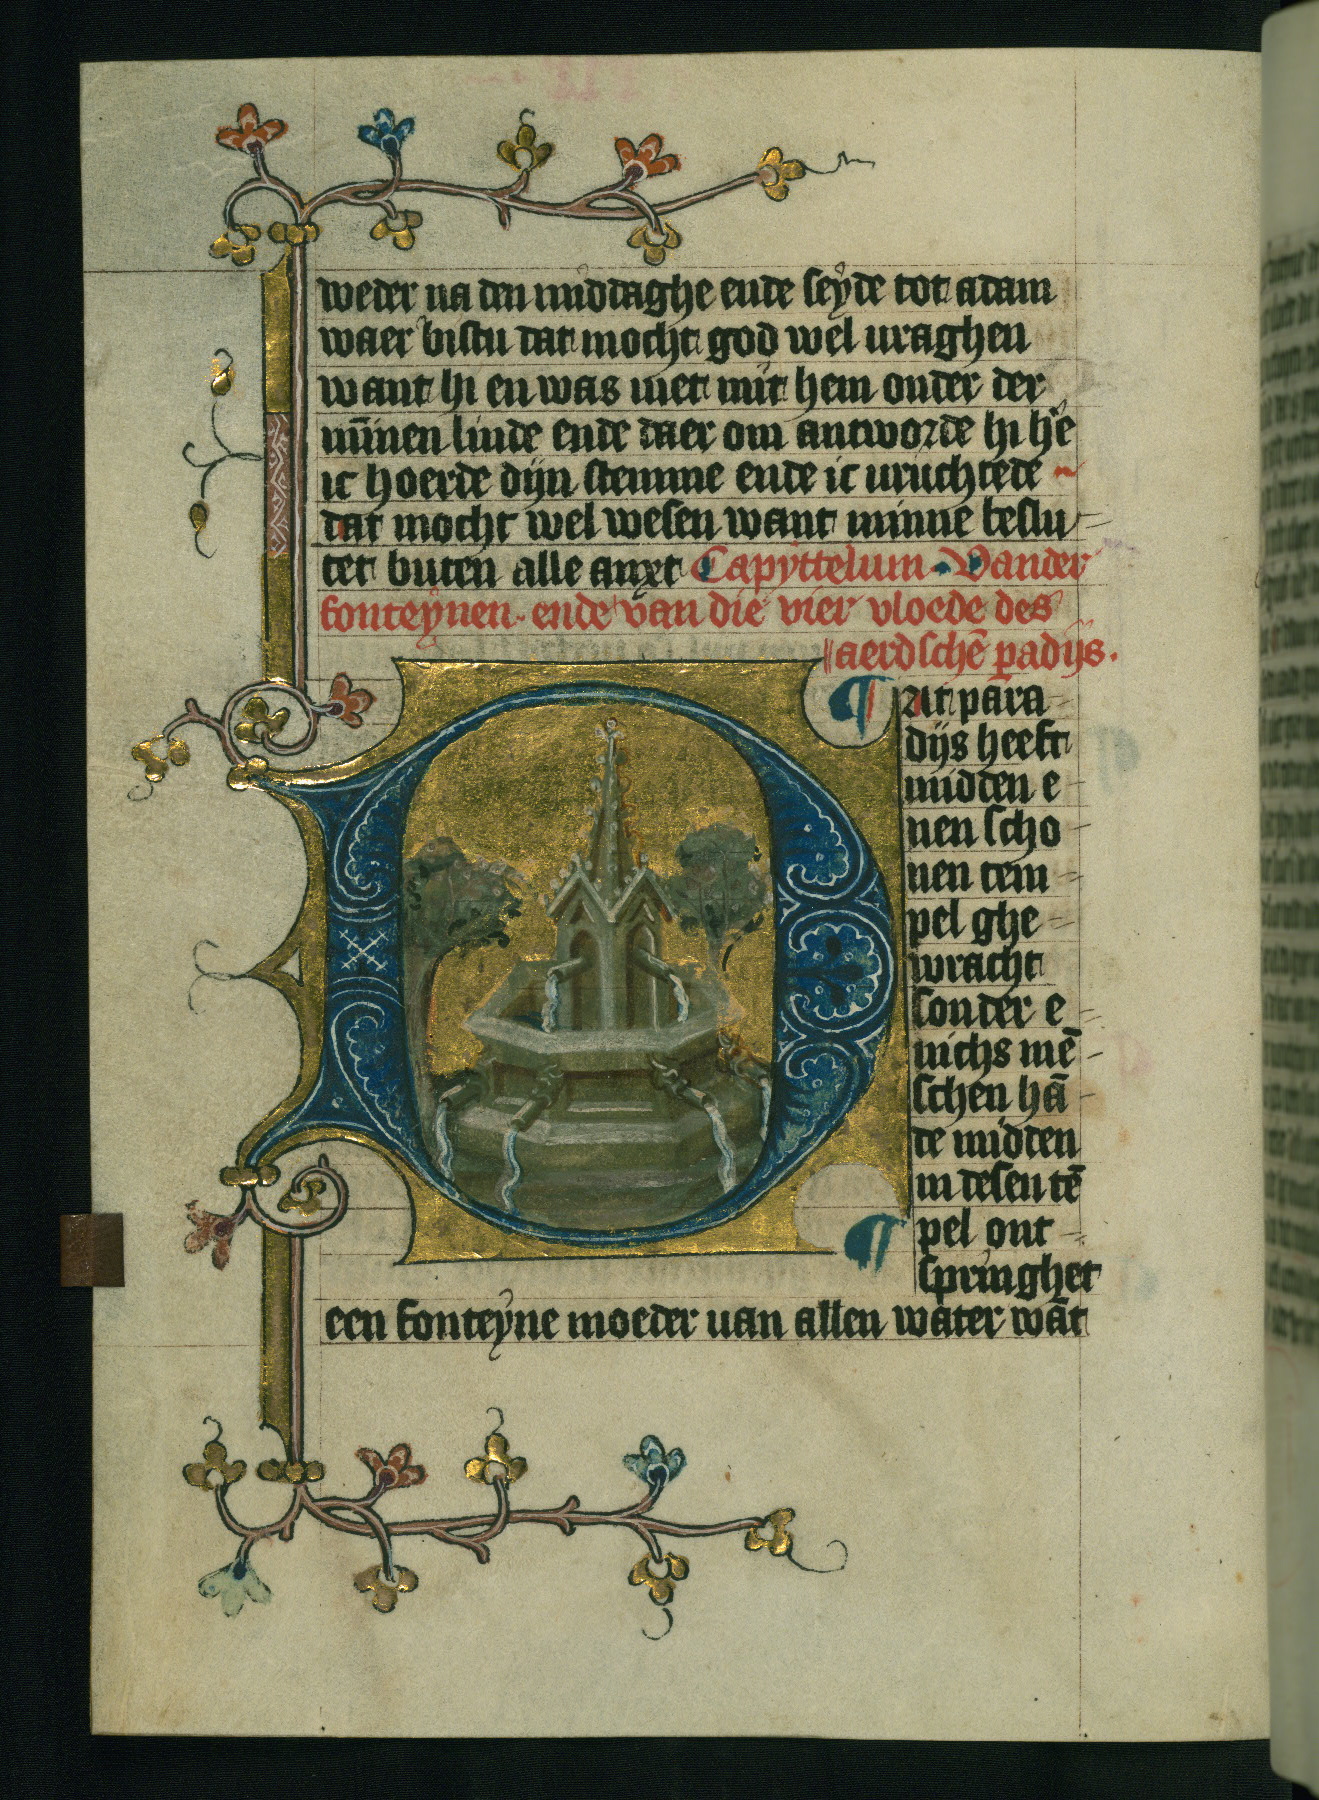 weder na den middaghe ende seyde tot adam
waer bistu dat mocht god wel uraghen
want hi en was niet mit hem onder der
mīnen linde ende daer om antworde hi hē
ic hoerde dijn stemme ende ic uruchtede
dat mocht wel wesen want minne beslu
tet buten alle anxt Capyttelum. Vander
fonteynen. ende van die vier vloede des
aerdschē padijs.
¶ At para
dijs heeft
midden e
nen scho
nen tem
pel ghe
wracht
sonder e
nichs mē
schen hā
de midden
in desen tē
¶ pel ont
springhet
een fonteyne moeder uan allen water wāt